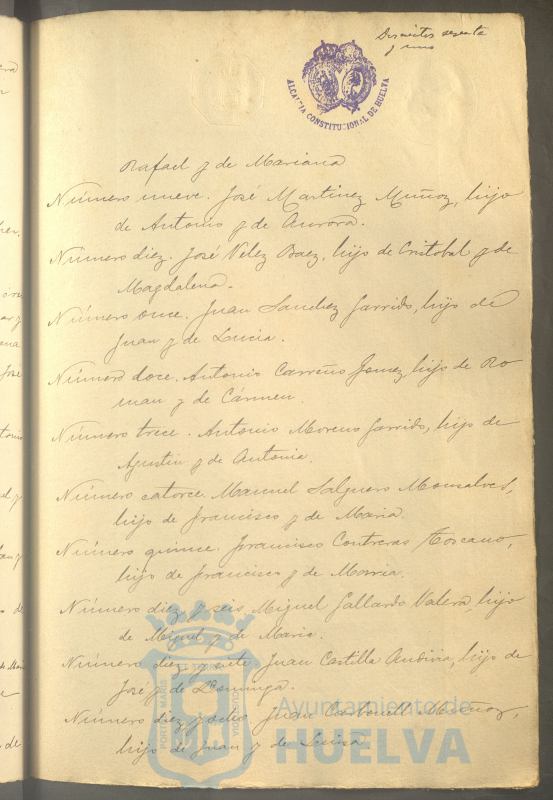 Doscientos sesenta
y uno
ALCALDIA CONSTITUCIONAL DE HUELVA
Rafael y de Mariana
Número nueve. José Martinez Muñoz, hijo
de Antonio y de Aurora.
Número diez. José Velez Baez, hijo de Cristobal y de
Magdalena.
Número once. Juan Sanchez Garrido, hijo de
Juan y de Lucia.
Número doce. Antonio Carreño Gomez, hijo de Ro
man y de Cármen.
Número trece. Antonio Moreno Garrido, hijo de
Agustin y de Antonia.
Número catorce. Manuel Salguero Monsalves,
hijo de Francisco y de Maria.
Número quince. Francisco Contreras Toscano,
hijo de Francisco y de Maria.
Número diez y seis Miguel Gallardo Valera, hijo
de Miguel y de Maria.
Número diez y siete Juan Castilla hijo de
José y de Dominga.
Número diez y ocho. Juan Carbonell
hijo de Juan y de Luisa.
Ayuntamiento de
HUELVA